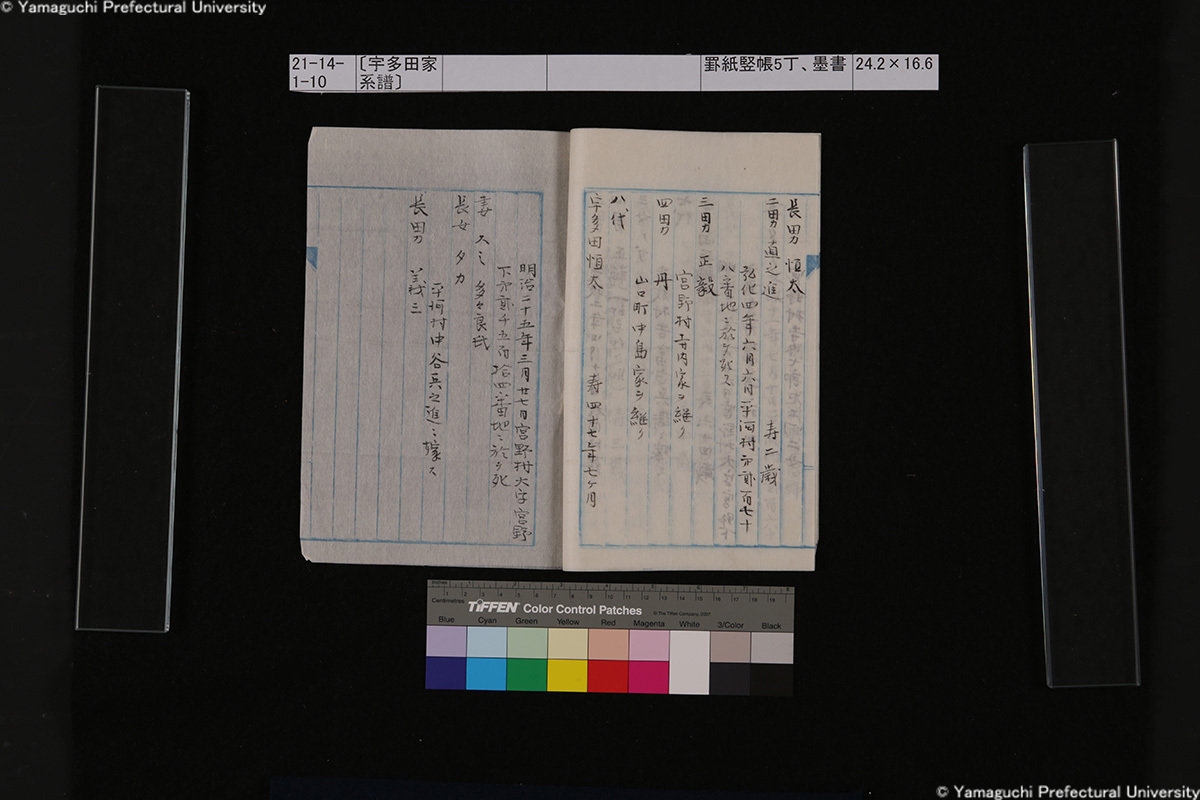 © Yamaguchi Prefectural University
21-14-1-10
〔宇多田家系譜〕
罫紙竪帳5丁、墨書
24.2×16.6
長男 恒太
二男 直之進 寿二歳
弘化四年六月六日平河村第貳百七十
八番地ニ於テ死ス
三男 正毅
宮野村寺内家ヲ継り
四男 丹
山口町中島家ヲ継り
八代
宇多田恒太 寿四十七年七ヶ月
明治二十五年三月廿七日宮野村大字宮野
下第貳千五百拾四番地ニ於テ死
妻 スミ 多々良氏
長女 タカ
平河村中谷兵之進ニ嫁ス
長男 義三
inches
Centimetres
TIFFEN Color Control Patches
© The Tiffen Company, 2007
Blue Cyan Green Yellow Red Magenta White 3/Color Black
© Yamaguchi Prefectural University